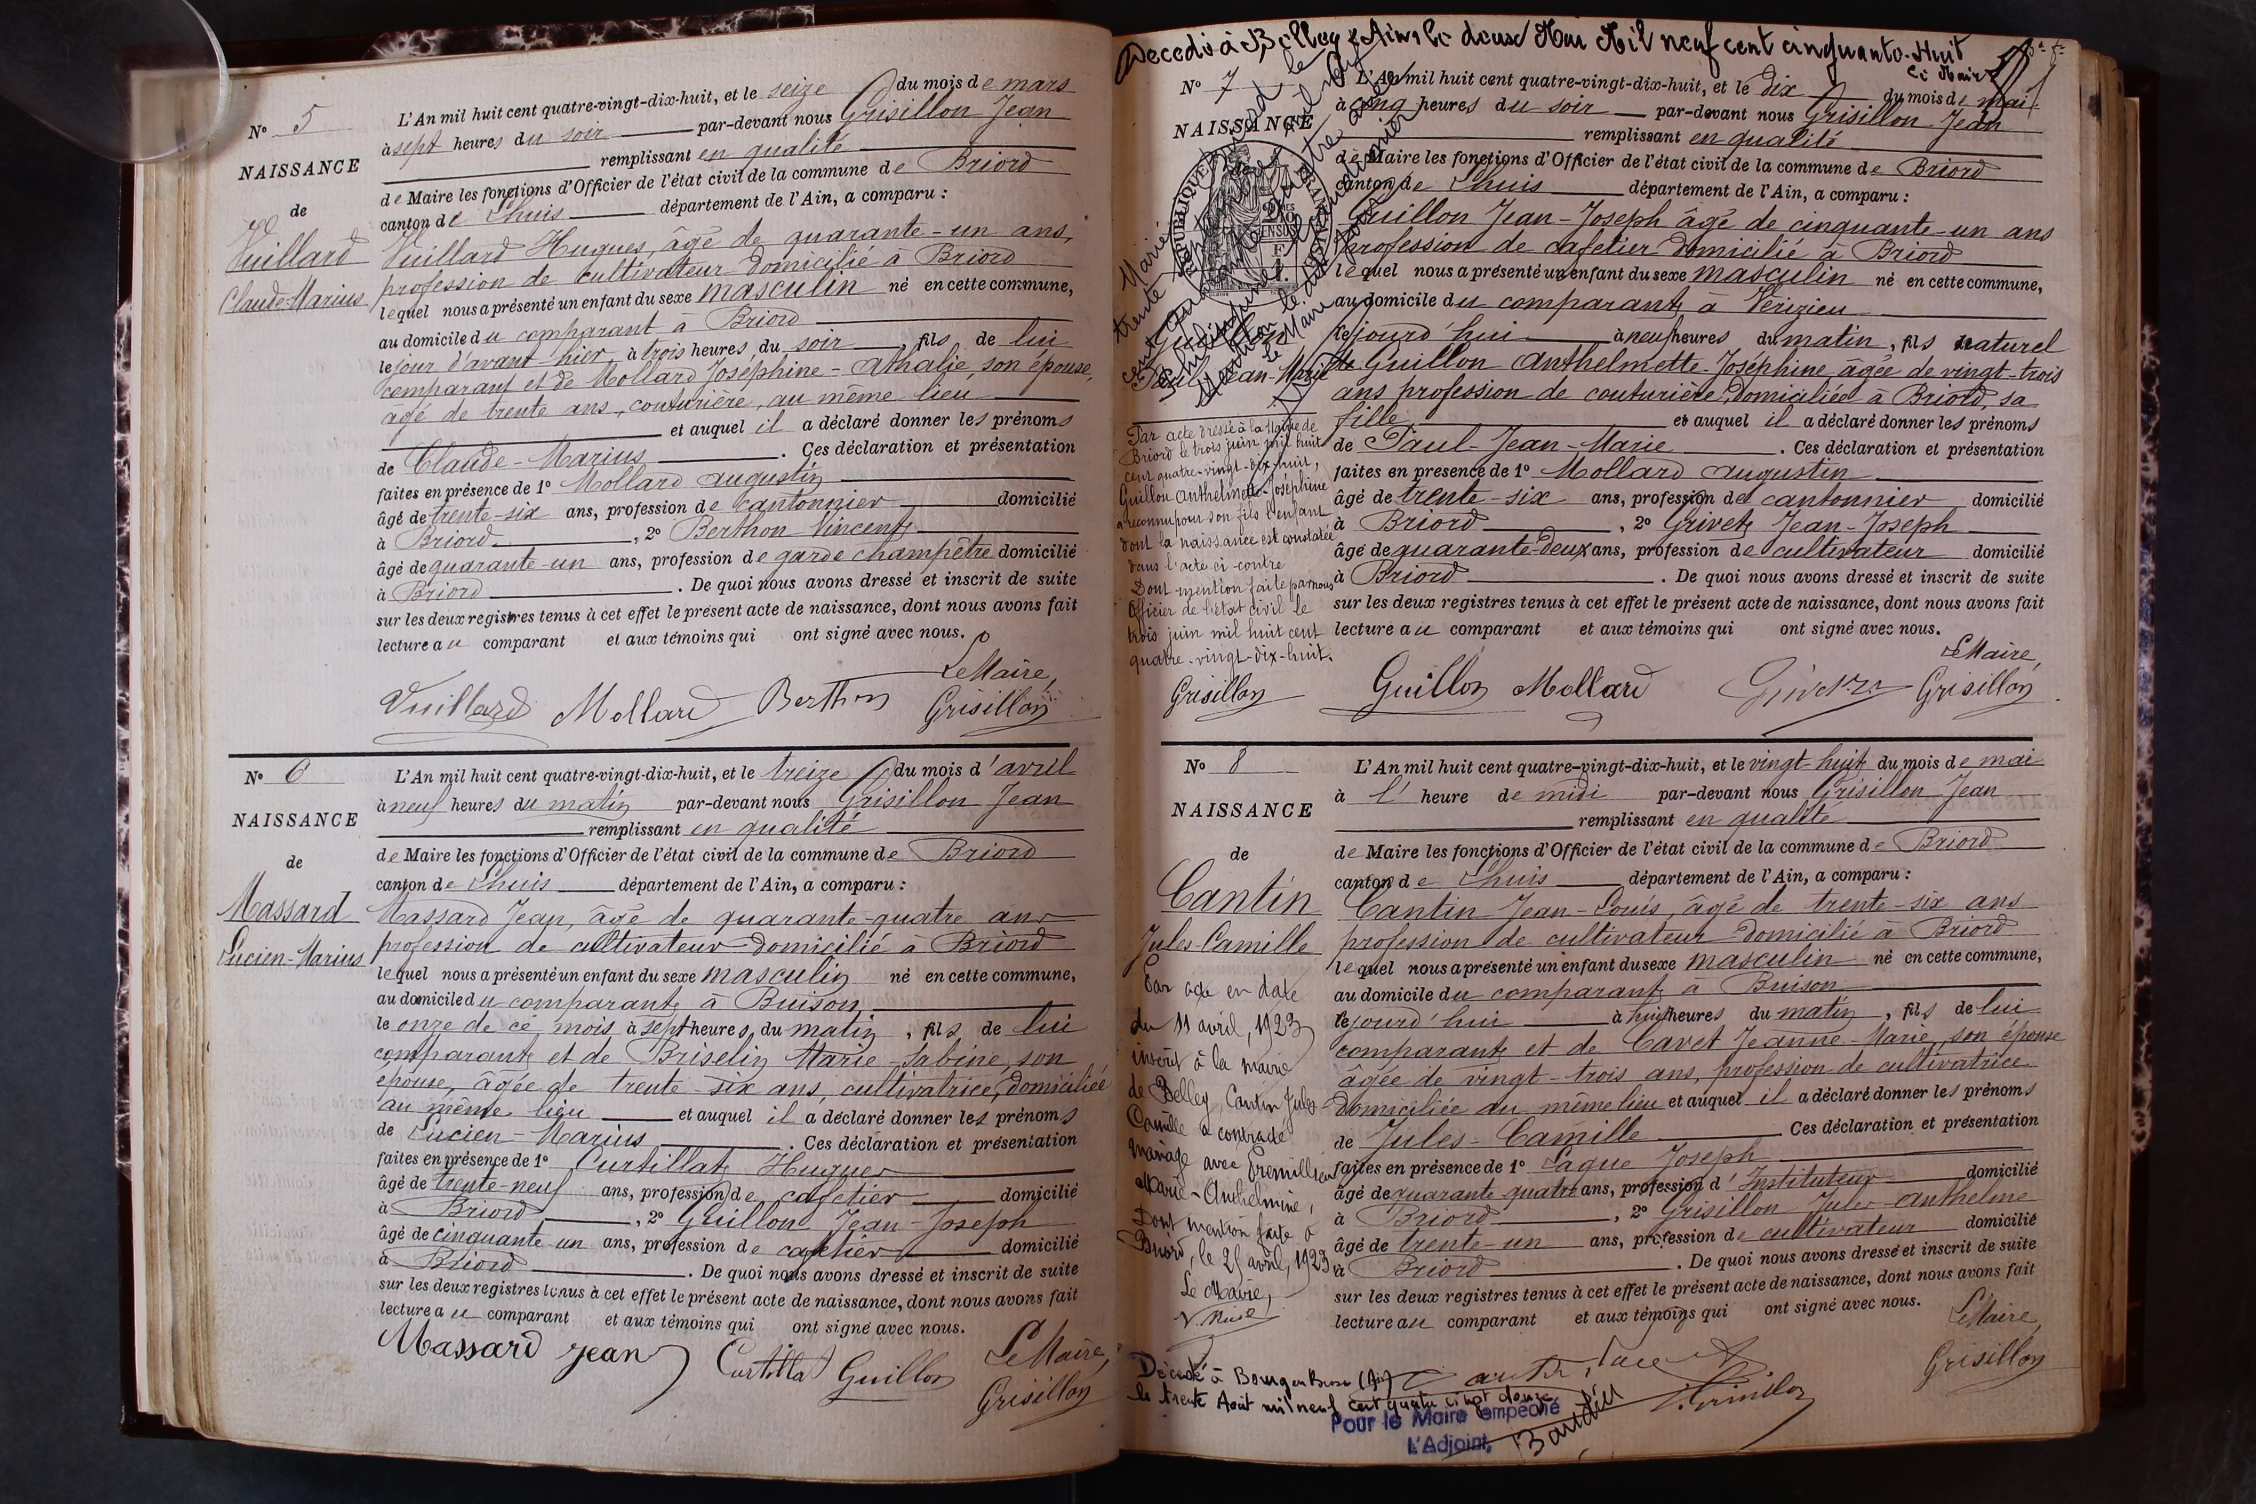 N° 5
NAISSANCE
de
Vuillard
Claude-Marius
L'An mil huit cent quatre-vingt-dix-huit, et le seize du mois de mars
à sept heures du soir par-devant nous Grisillon Jean
remplissant en qualité
de Maire les fonctions d'Officier de l'état civil de la commune de Briord
canton de Lhuis département de l'Ain, a comparu :
Vuillard Hugues, âgé de quarante-un ans,
profession de cultivateur domicilié à Briord
lequel nous a présenté un enfant du sexe masculin né en cette commune,
au domicile du comparant à Briord
le jour d'avant hier, à trois heures du soir, fils de lui
comparant et de Mollard Joséphine-Athalie, son épouse,
âgé de trente ans, couturière, au même lieu
et auquel il a déclaré donner les prénoms
de Claude-Marius. Ces déclaration et présentation
faites en présence de 1° Mollard Augustin
âgé de trente-six ans, profession de cantonnier domicilié
à Briord, 2° Berthon Vincent
âgé de quarante-un ans, profession de garde champêtre domicilié
à Briord. De quoi nous avons dressé et inscrit de suite
sur les deux registres tenus à cet effet le présent acte de naissance, dont nous avons fait
lecture au comparant et aux témoins qui ont signé avec nous.
Le Maire,
Vuillard Mollard Berthon Grisillon
N° 6
NAISSANCE
de
Massard
Lucien-Marius
L'An mil huit cent quatre-vingt-dix-huit, et le treize du mois d'avril
à neuf heures du matin par-devant nous Grisillon Jean
remplissant en qualité
de Maire les fonctions d'Officier de l'état civil de la commune de Briord
canton de Lhuis département de l'Ain, a comparu :
Massard Jean, âgé de quarante-quatre ans
profession de cultivateur domicilié à Briord
lequel nous a présenté un enfant du sexe masculin né en cette commune,
au domicile du comparant à Buison
le onze de ce mois, à sept heures, du matin, fils de lui
comparant et de Briselin Marie-Sabine, son
épouse, âgée de trente-six ans, cultivatrice, domiciliée
au même lieu et auquel il a déclaré donner les prénoms
de Lucien-Marius. Ces déclaration et présentation
faites en présence de 1° Curtillat Hugues
âgé de trente-neuf ans, profession de cafetier domicilié
à Briord, 2° Guillon Jean-Joseph
âgé de cinquante-un ans, profession de cafetier domicilié
à Briord. De quoi nous avons dressé et inscrit de suite
sur les deux registres tenus à cet effet le présent acte de naissance, dont nous avons fait
lecture au comparant et aux témoins qui ont signé avec nous.
Massard Jean Curtillat Guillon Le Maire,
Grisillon
Décédé à Belley Ain le deux Mai Mil neuf cent cinquante-Huit
Le Maire
N° 7
NAISSANCE
de
Guillon
Paul-Jean-Marie
RÉPUBLIQUE FRANÇAISE
Marié
trente
Par acte dressé à la Mairie de
Briord le trois juin mil huit
cent quatre-vingt-dix-huit,
Guillon Anthelmette-Joséphine
a reconnu pour son fils l'enfant
dont la naissance est constatée
dans l'acte ci-contre
Dont mention faite par nous
Officier de l'état civil le
trois juin mil huit cent
quatre-vingt-dix-huit.
Grisillon
L'An mil huit cent quatre-vingt-dix-huit, et le dix du mois de mai
à cinq heures du soir par-devant nous Grisillon Jean
remplissant en qualité
de Maire les fonctions d'Officier de l'état civil de la commune de Briord
canton de Lhuis département de l'Ain, a comparu :
Guillon Jean-Joseph âgé de cinquante-un ans
profession de cafetier domicilié à Briord
lequel nous a présenté un enfant du sexe masculin né en cette commune,
au domicile du comparant, à Vérizieu
le jourd'hui à neuf heures du matin, fils naturel
de Guillon Anthelmette-Joséphine, âgée de vingt-trois
ans profession de couturière, domiciliée à Briord, sa
fille et auquel il a déclaré donner les prénoms
de Paul-Jean-Marie. Ces déclaration et présentation
faites en présence de 1° Mollard Augustin
âgé de trente-six ans, profession de cantonnier domicilié
à Briord, 2° Grivet Jean-Joseph
âgé de quarante-deux ans, profession de cultivateur domicilié
à Briord. De quoi nous avons dressé et inscrit de suite
sur les deux registres tenus à cet effet le présent acte de naissance, dont nous avons fait
lecture au comparant et aux témoins qui ont signé avec nous.
Le Maire,
Guillon Mollard Grivet Grisillon
N° 8
NAISSANCE
de
Cantin
Jules-Camille
Par acte en date
du 11 avril, 1923
inscrit à la mairie
de Belley, Cantin Jules
Camille a contracté
mariage avec Cremillieu
Marie-Anthelmine,
Dont mention faite à
Briord, le 25 avril, 1923
Le Maire,
L'An mil huit cent quatre-vingt-dix-huit, et le vingt-huit du mois de mai
à l'heure de midi par-devant nous Grisillon Jean
remplissant en qualité
de Maire les fonctions d'Officier de l'état civil de la commune de Briord
canton de Lhuis département de l'Ain, a comparu :
Cantin Jean-Louis, âgé de trente-six ans
profession de cultivateur domicilié à Briord
lequel nous a présenté un enfant du sexe masculin né en cette commune,
au domicile du comparant à Buison
le jourd'hui à huit heures du matin, fils de lui
comparant et de Cavet Jeanne-Marie, son épouse
âgée de vingt-trois ans, profession de cultivatrice
domiciliée au même lieu et auquel il a déclaré donner les prénoms
de Jules-Camille Ces déclaration et présentation
faites en présence de 1° Laque Joseph
âgé de quarante quatre ans, profession d'Instituteur domicilié
à Briord, 2° Grisillon Jules-Anthelme
âgé de trente-un ans, profession de cultivateur domicilié
à Briord. De quoi nous avons dressé et inscrit de suite
sur les deux registres tenus à cet effet le présent acte de naissance, dont nous avons fait
lecture au comparant et aux témoins qui ont signé avec nous.
Le Maire,
Grisillon
Décédé à Bourg en Bresse (Ain)
le trente Août mil neuf cent quatre vingt douze
Pour le Maire empêché
L'Adjoint,